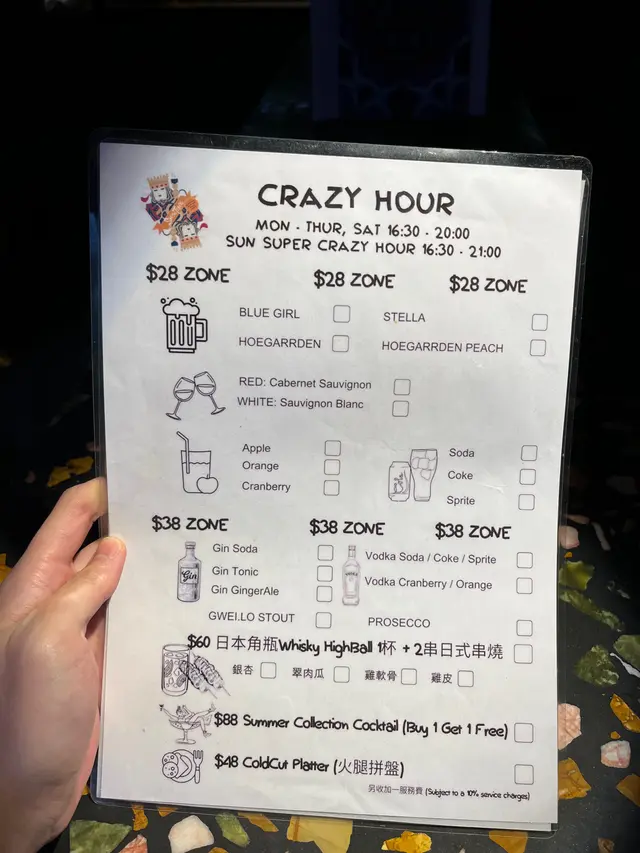 CRAZY HOUR
MON - THUR, SAT 16:30 - 20:00
SUN SUPER CRAZY HOUR 16:30 - 21:00
$28 ZONE $28 ZONE $28 ZONE
BLUE GIRL STELLA
HOEGARRDEN HOEGARRDEN PEACH
RED: Cabernet Sauvignon
WHITE: Sauvignon Blanc
Apple Soda
Orange Coke
Cranberry Sprite
$38 ZONE $38 ZONE $38 ZONE
Gin Soda Vodka Soda / Coke / Sprite
Gin Tonic Vodka Cranberry / Orange
Gin GingerAle
Gin
GWEI.LO STOUT PROSECCO
$60 日本角瓶Whisky HighBall 1杯 + 2串日式串燒
銀杏 翠肉瓜 雞軟骨 雞皮
$88 Summer Collection Cocktail (Buy 1 Get 1 Free)
$48 ColdCut Platter (火腿拼盤)
另收加一服務費 (Subject to a 10% service charges)